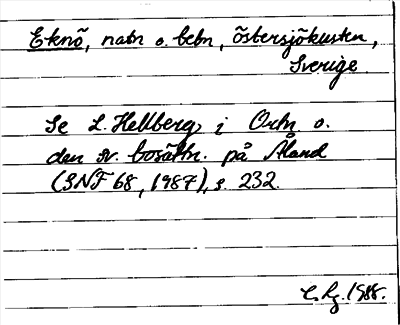 Eknö, natn o. bebn, östersjökusten,
Sverige.
Se L. Hellberg i Ortn o.
den sv. bosättn. på Åland
(SNF 68, 1987), s. 232.
1988.